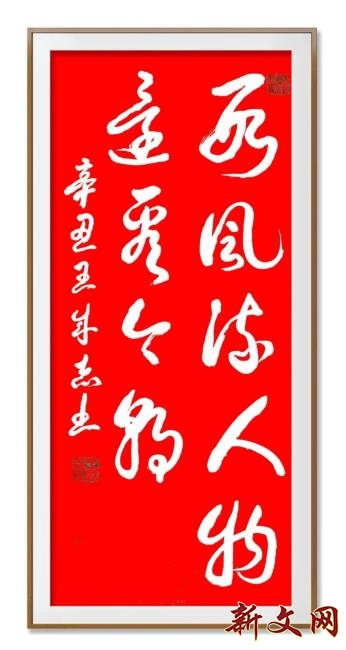 数风流人物
還看今朝
辛丑王成志
新文网